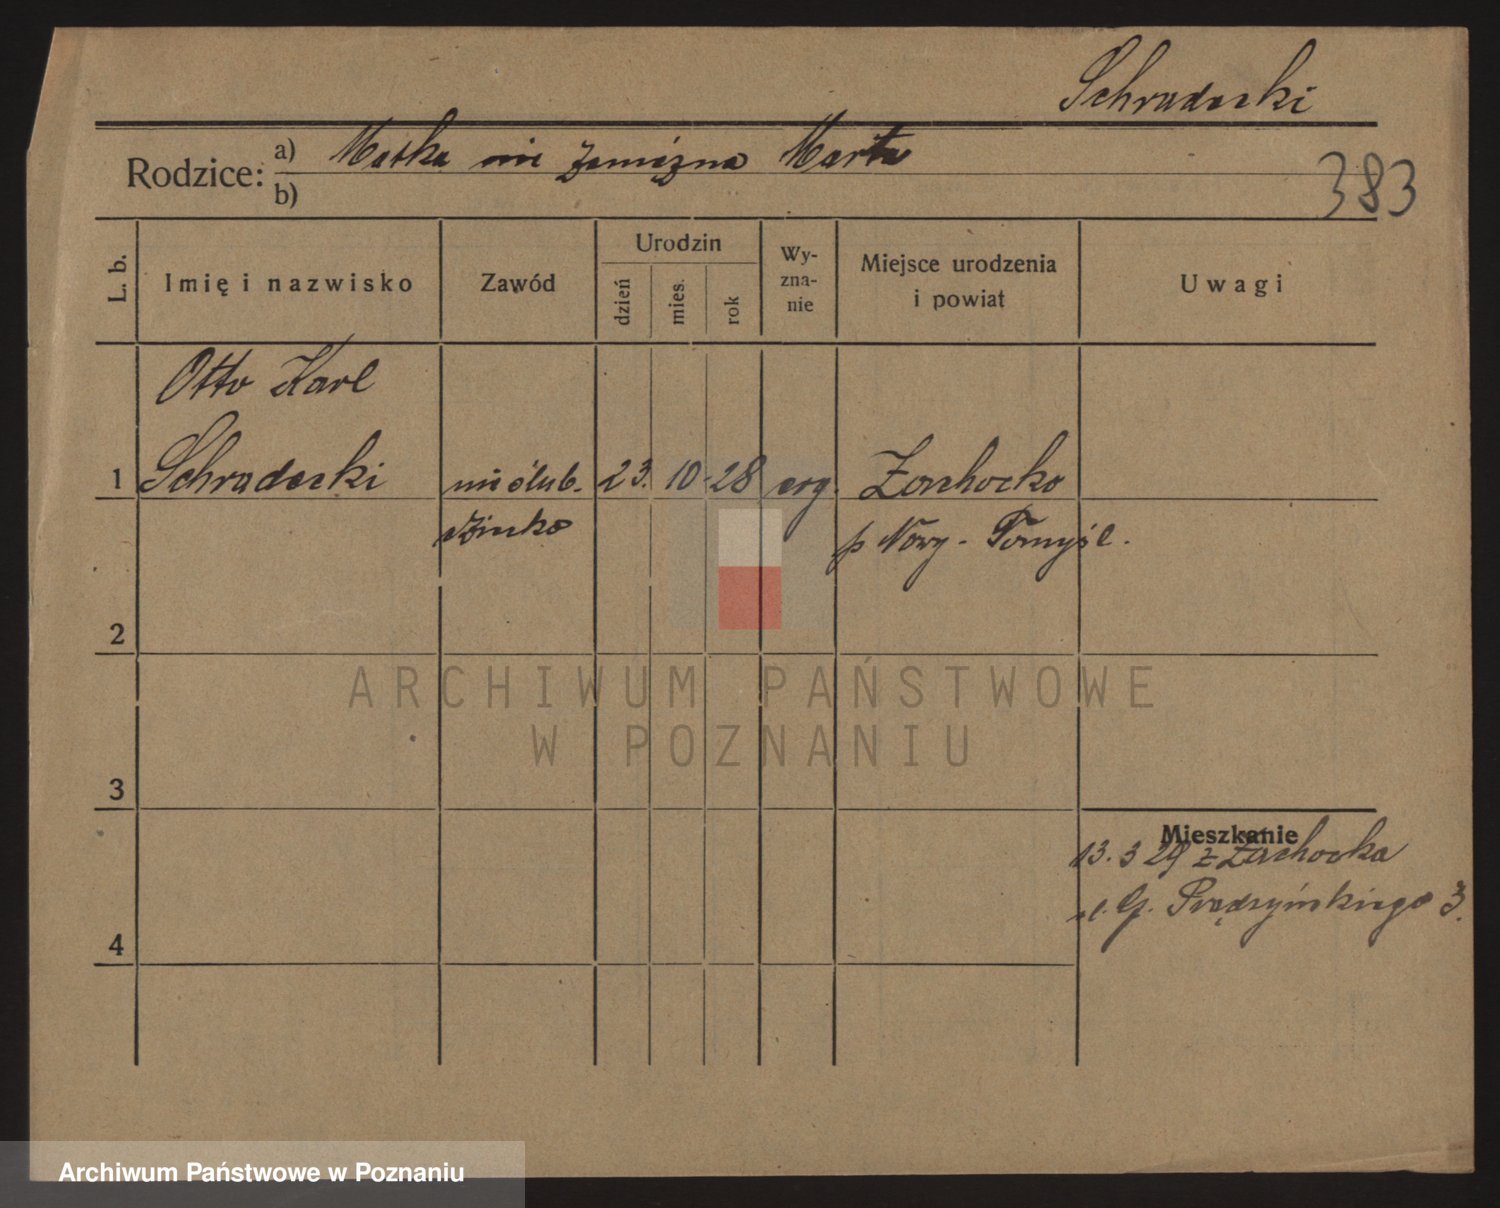 Schradecki
Rodzice: a) Matka nie zamężna Marta
b)
383
L. b.
Imię i nazwisko
Zawód
Urodzin
dzień
mies.
rok
Wy-
zna-
nie
Miejsce urodzenia
i powiat
Uwagi
Otto Karl
1 Schradecki nieślub. 23. 10. 28 erg.
p Nowy-Tomyśl.
2
ARCHIWUM PAŃSTWOWE
W POZNANIU
3
Mieszkanie
13. 3 29 z
ul. G. Prądzyńskiego 3.
4
Archiwum Państwowe w Poznaniu